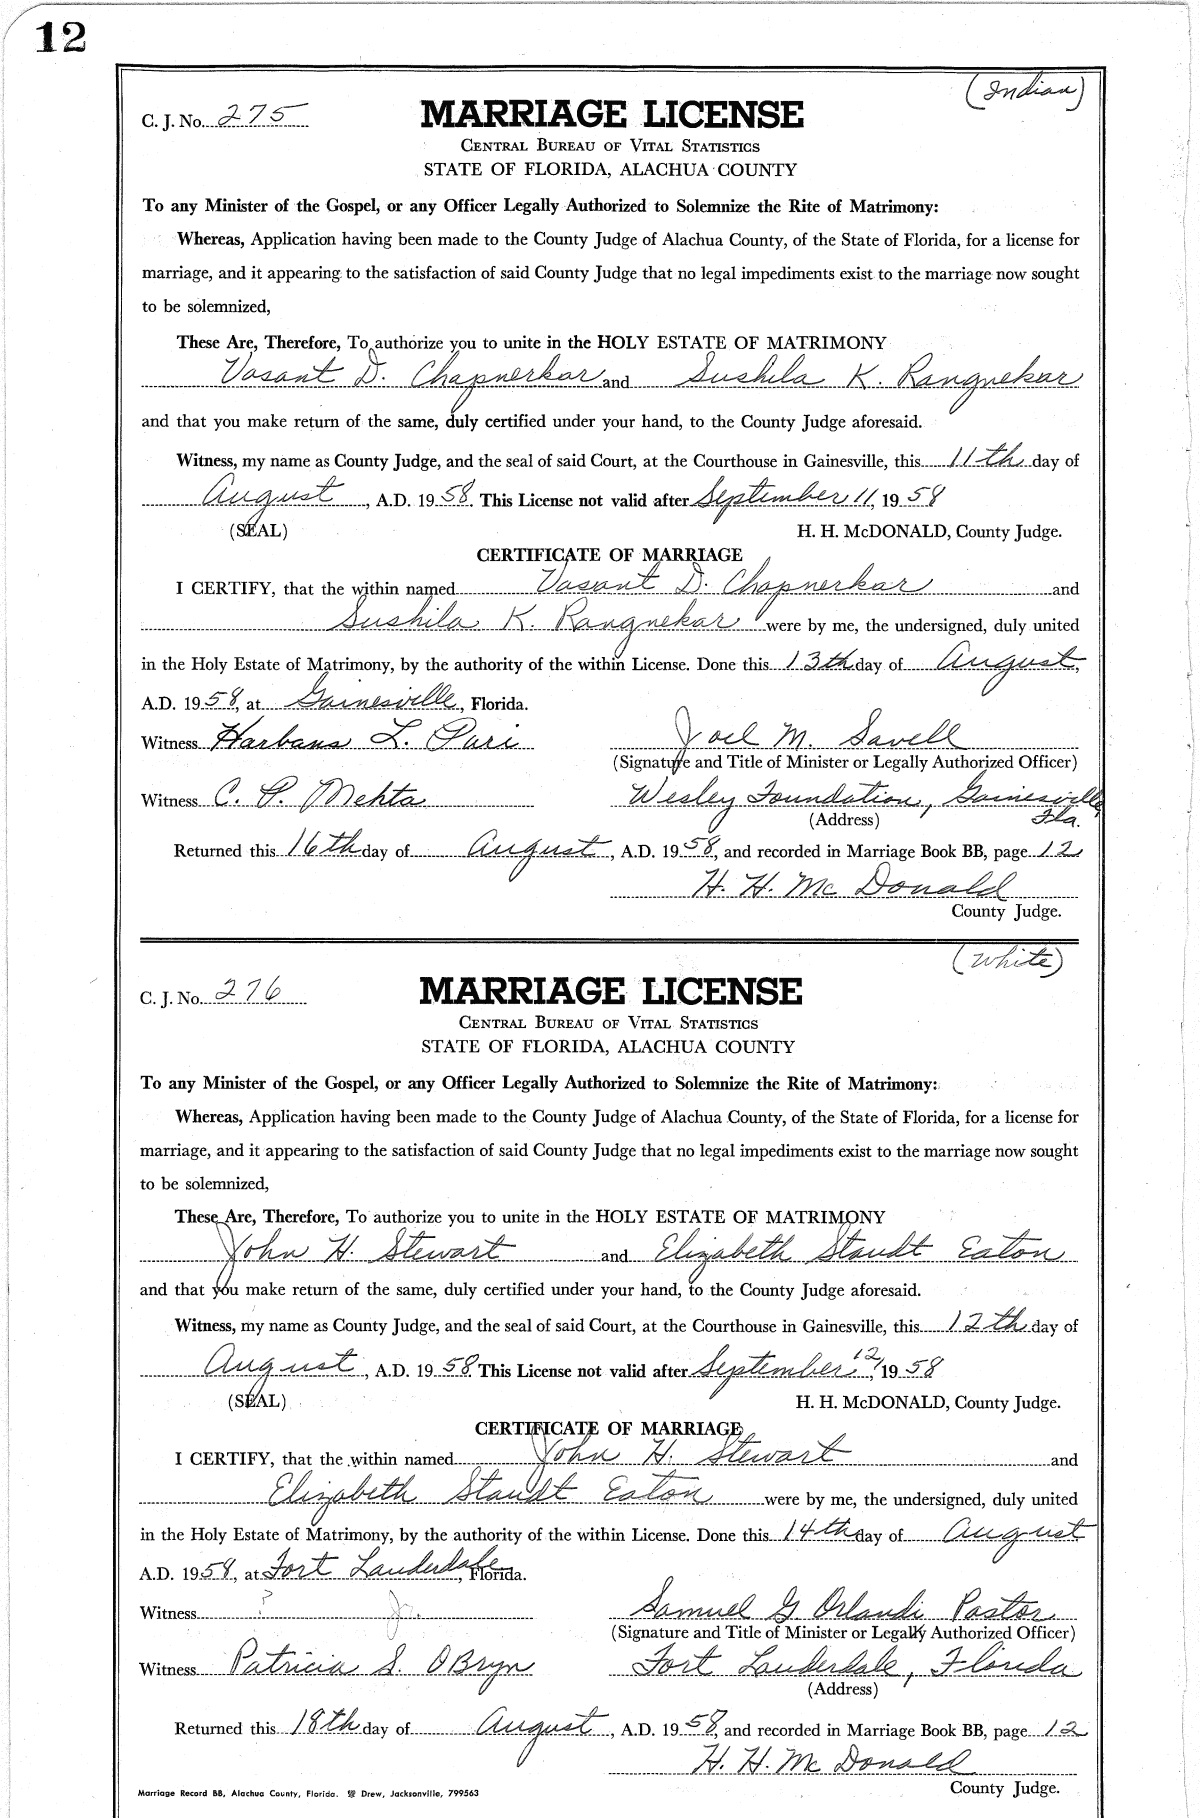 12
(Indian)
C. J. No. 275
MARRIAGE LICENSE
CENTRAL BUREAU OF VITAL STATISTICS
STATE OF FLORIDA, ALACHUA COUNTY
To any Minister of the Gospel, or any Officer Legally Authorized to Solemnize the Rite of Matrimony:
Whereas, Application having been made to the County Judge of Alachua County, of the State of Florida, for a license for
marriage, and it appearing to the satisfaction of said County Judge that no legal impediments exist to the marriage now sought
to be solemnized,
These Are, Therefore, To authorize you to unite in the HOLY ESTATE OF MATRIMONY
Vasant D. Chapnerkar and Sushila K. Rangnekar
and that you make return of the same, duly certified under your hand, to the County Judge aforesaid.
Witness, my name as County Judge, and the seal of said Court, at the Courthouse in Gainesville, this 11th day of
August, A.D. 1958. This License not valid after September 11, 1958
(SEAL) H. H. McDONALD, County Judge.
CERTIFICATE OF MARRIAGE
I CERTIFY, that the within named Vasant D. Chapnerkar and
Sushila K. Rangnekar were by me, the undersigned, duly united
in the Holy Estate of Matrimony, by the authority of the within License. Done this 13th day of August,
A.D. 1958, at Gainesville, Florida.
Witness Harbans L. Puri Joel M. Savell
(Signature and Title of Minister or Legally Authorized Officer)
Witness C. P. Mehta Wesley Foundation, Gainesville,
(Address) Fla.
Returned this 16th day of August, A.D. 1958, and recorded in Marriage Book BB, page 12
H. H. McDonald
County Judge.
(White)
C. J. No. 276
MARRIAGE LICENSE
CENTRAL BUREAU OF VITAL STATISTICS
STATE OF FLORIDA, ALACHUA COUNTY
To any Minister of the Gospel, or any Officer Legally Authorized to Solemnize the Rite of Matrimony:
Whereas, Application having been made to the County Judge of Alachua County, of the State of Florida, for a license for
marriage, and it appearing to the satisfaction of said County Judge that no legal impediments exist to the marriage now sought
to be solemnized,
These Are, Therefore, To authorize you to unite in the HOLY ESTATE OF MATRIMONY
John H. Stewart and Elizabeth Staudt Eaton
and that you make return of the same, duly certified under your hand, to the County Judge aforesaid.
Witness, my name as County Judge, and the seal of said Court, at the Courthouse in Gainesville, this 12th day of
August, A.D. 1958. This License not valid after September 12, 1958
(SEAL) H. H. McDONALD, County Judge.
CERTIFICATE OF MARRIAGE
I CERTIFY, that the within named John H. Stewart and
Elizabeth Staudt Eaton were by me, the undersigned, duly united
in the Holy Estate of Matrimony, by the authority of the within License. Done this 14th day of August
A.D. 1958, at Fort Lauderdale, Florida.
Witness ? Jr. Samuel G Orlandi Pastor
(Signature and Title of Minister or Legally Authorized Officer)
Witness Patricia S. OBryn Fort Lauderdale, Florida
(Address)
Returned this 18th day of August, A.D. 1958, and recorded in Marriage Book BB, page 12
H. H. McDonald
County Judge.
Marriage Record BB, Alachua County, Florida. Drew, Jacksonville, 799563